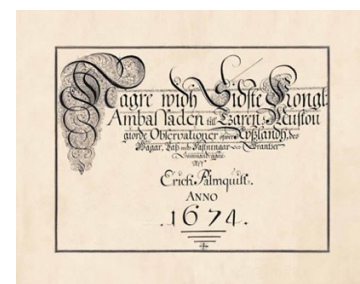 Någre widh Sidste Kongl:
Ambassaden till Tzaren i Muskou
giorde Observationer öfwer Rysslandh, des
Wägar, Pass medh Fästningar och Gräntzer
Sammandragne
Aff
Erich Palmquist.
ANNO
.1674.